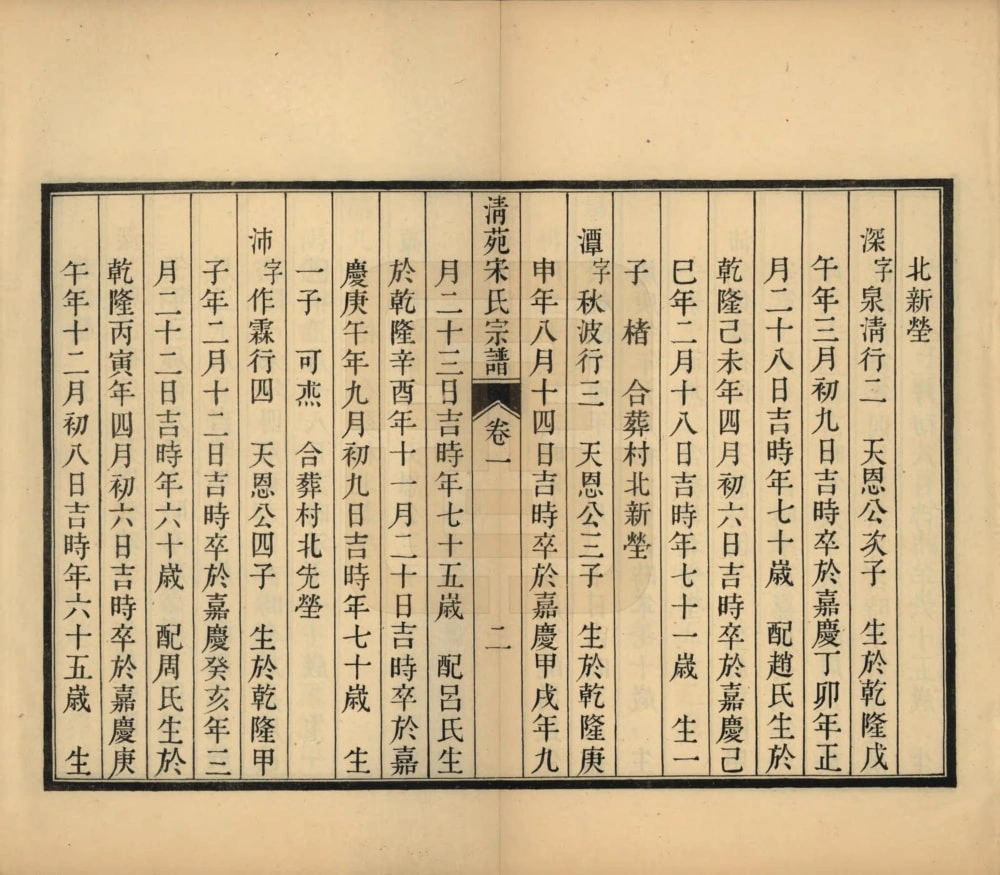 北新塋
深字泉淸行二　天恩公次子　生於乾隆戊
午年三月初九日吉時卒於嘉慶丁卯年正
月二十八日吉時年七十歲　配趙氏生於
乾隆己未年四月初六日吉時卒於嘉慶己
巳年二月十八日吉時年七十一歲　生一
子　楮　合葬村北新塋
潭字秋波行三　天恩公三子　生於乾隆庚
申年八月十四日吉時卒於嘉慶甲戌年九
淸苑宋氏宗譜　卷一　二
月二十三日吉時年七十五歲　配呂氏生
於乾隆辛酉年十一月二十日吉時卒於嘉
慶庚午年九月初九日吉時年七十歲　生
一子　可𤋱　合葬村北先塋
沛字作霖行四　天恩公四子　生於乾隆甲
子年二月十二日吉時卒於嘉慶癸亥年三
月二十二日吉時年六十歲　配周氏生於
乾隆丙寅年四月初六日吉時卒於嘉慶庚
午年十二月初八日吉時年六十五歲　生